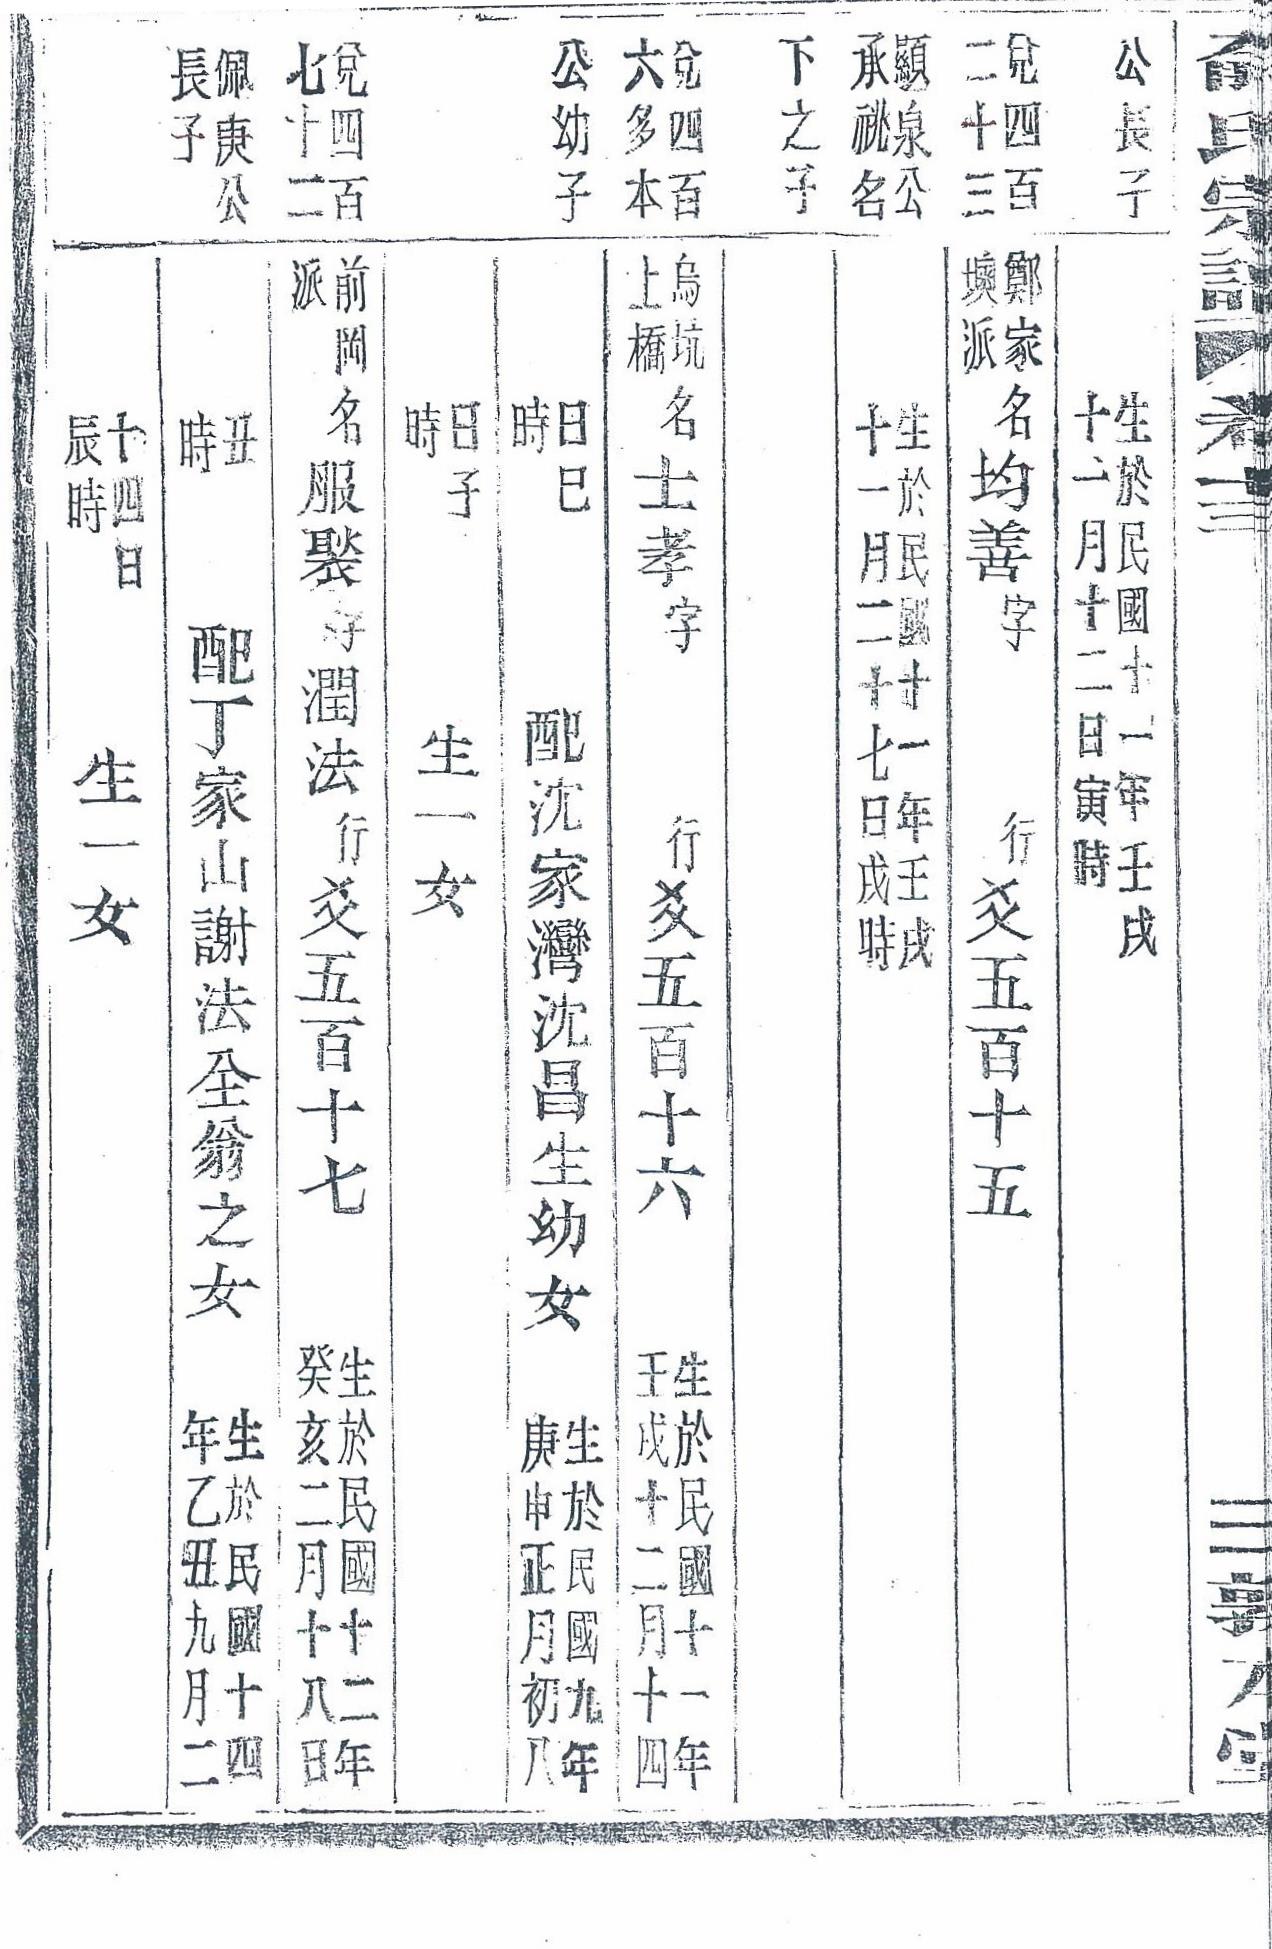 俞氏宗譜
卷三
三
敦
公長子
生於民國十一年壬戌
十二月十二日寅時
兌四百
二十三
鄭家
塽派
名均善字
行爻五百十五
顯泉公
承祧名
生於民國十一年壬戌
十一月二十七日戌時
下之子
兌四百
六多本
烏坑
上橋
名士孝字
行爻五百十六
生於民國十一年
壬戌十二月十四
公幼子
日巳
時
配沈家灣沈昌生幼女
生於民國九年
庚申正月初八
日子
時
生一女
兌四百
七十二
前岡
派
名服褧字潤法
行爻五百十七
生於民國十二年
癸亥二月十八日
佩庚公
長子
丑
時
配丁家山謝法全翁之女
生於民國十四
年乙丑九月二
十四日
辰時
生一女